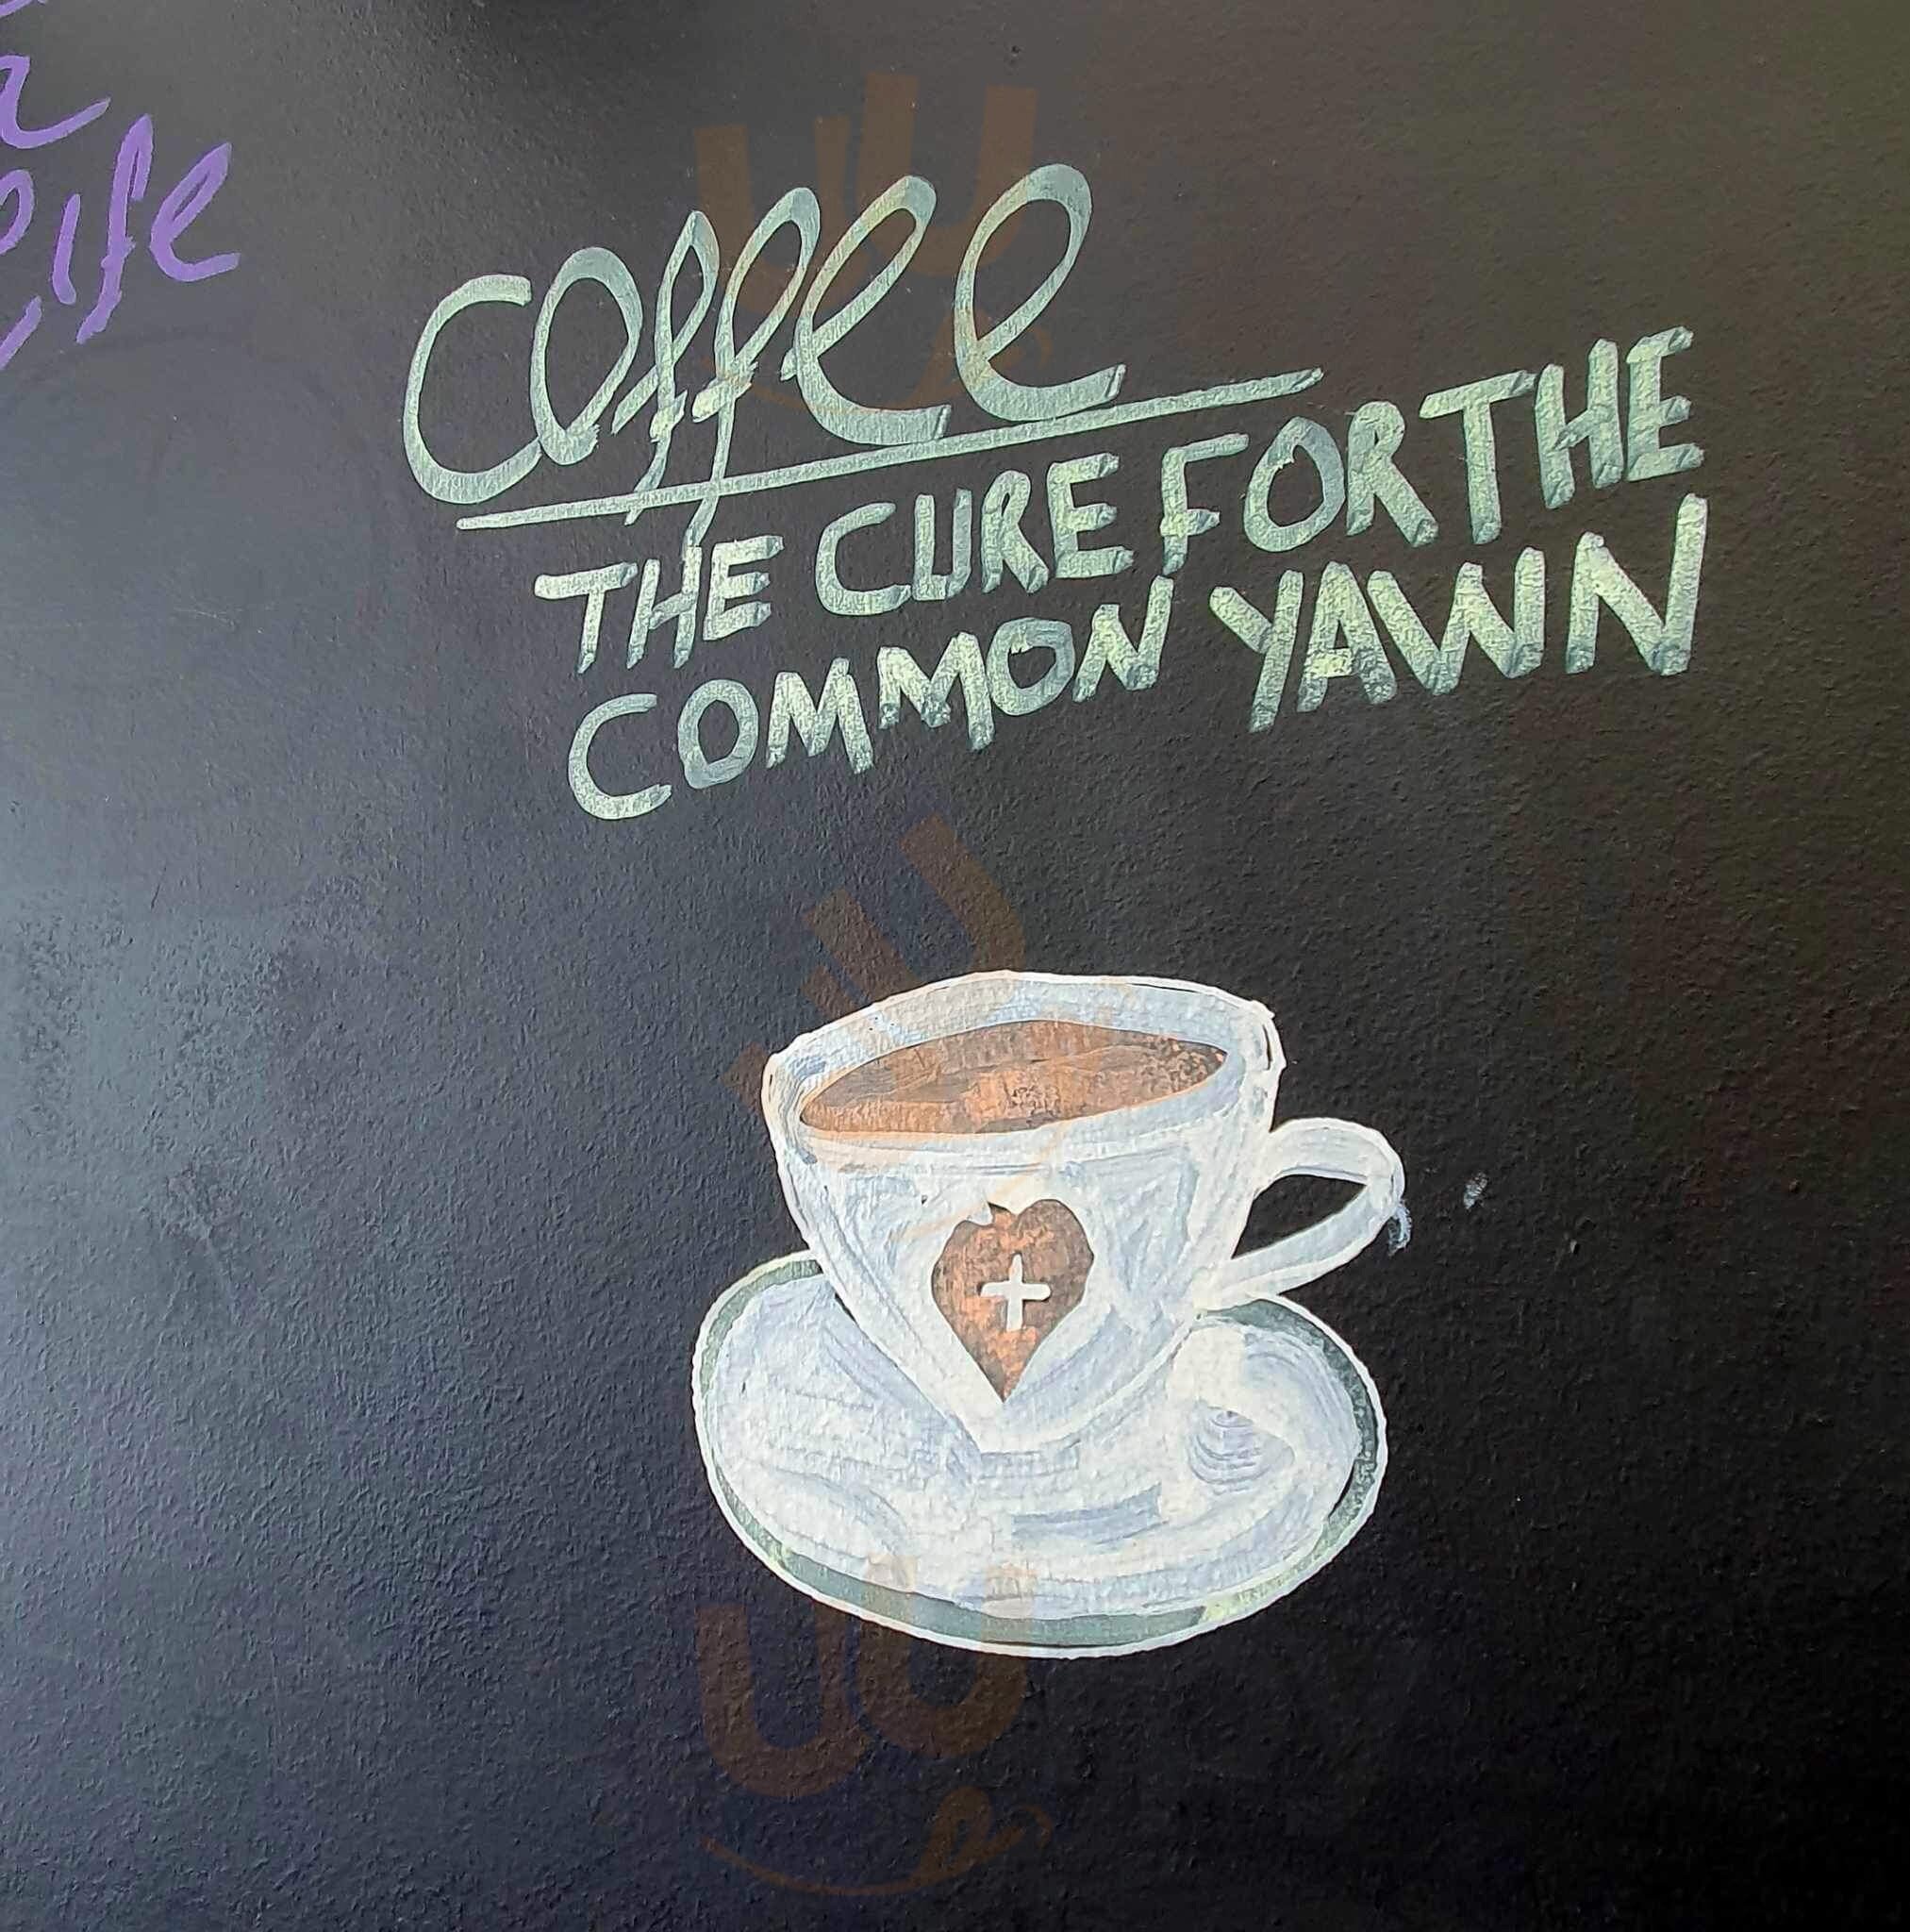 life
Coffee
THE CURE FOR THE
COMMON YAWN